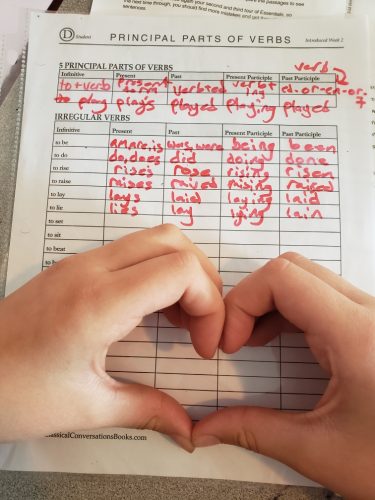 the next time through, you should find more mistakes and get
sentences.
D Student PRINCIPAL PARTS OF VERBS Introduced Week 2
verb
5 PRINCIPAL PARTS OF VERBS
Infinitive Present Past Present Participle Past Participle
to + verb present form verb + ed verb + ing ed-or-en-or-
to play plays played playing played
IRREGULAR VERBS
Infinitive Present Past Present Participle Past Participle
to be am, are, is was, were being been
to do do, does did doing done
to rise rises rose rising risen
to raise raises raised raising raised
to lay lays laid laying laid
to lie lies lay lying lain
to set
to sit
to beat
lassicalConversationsBooks.com